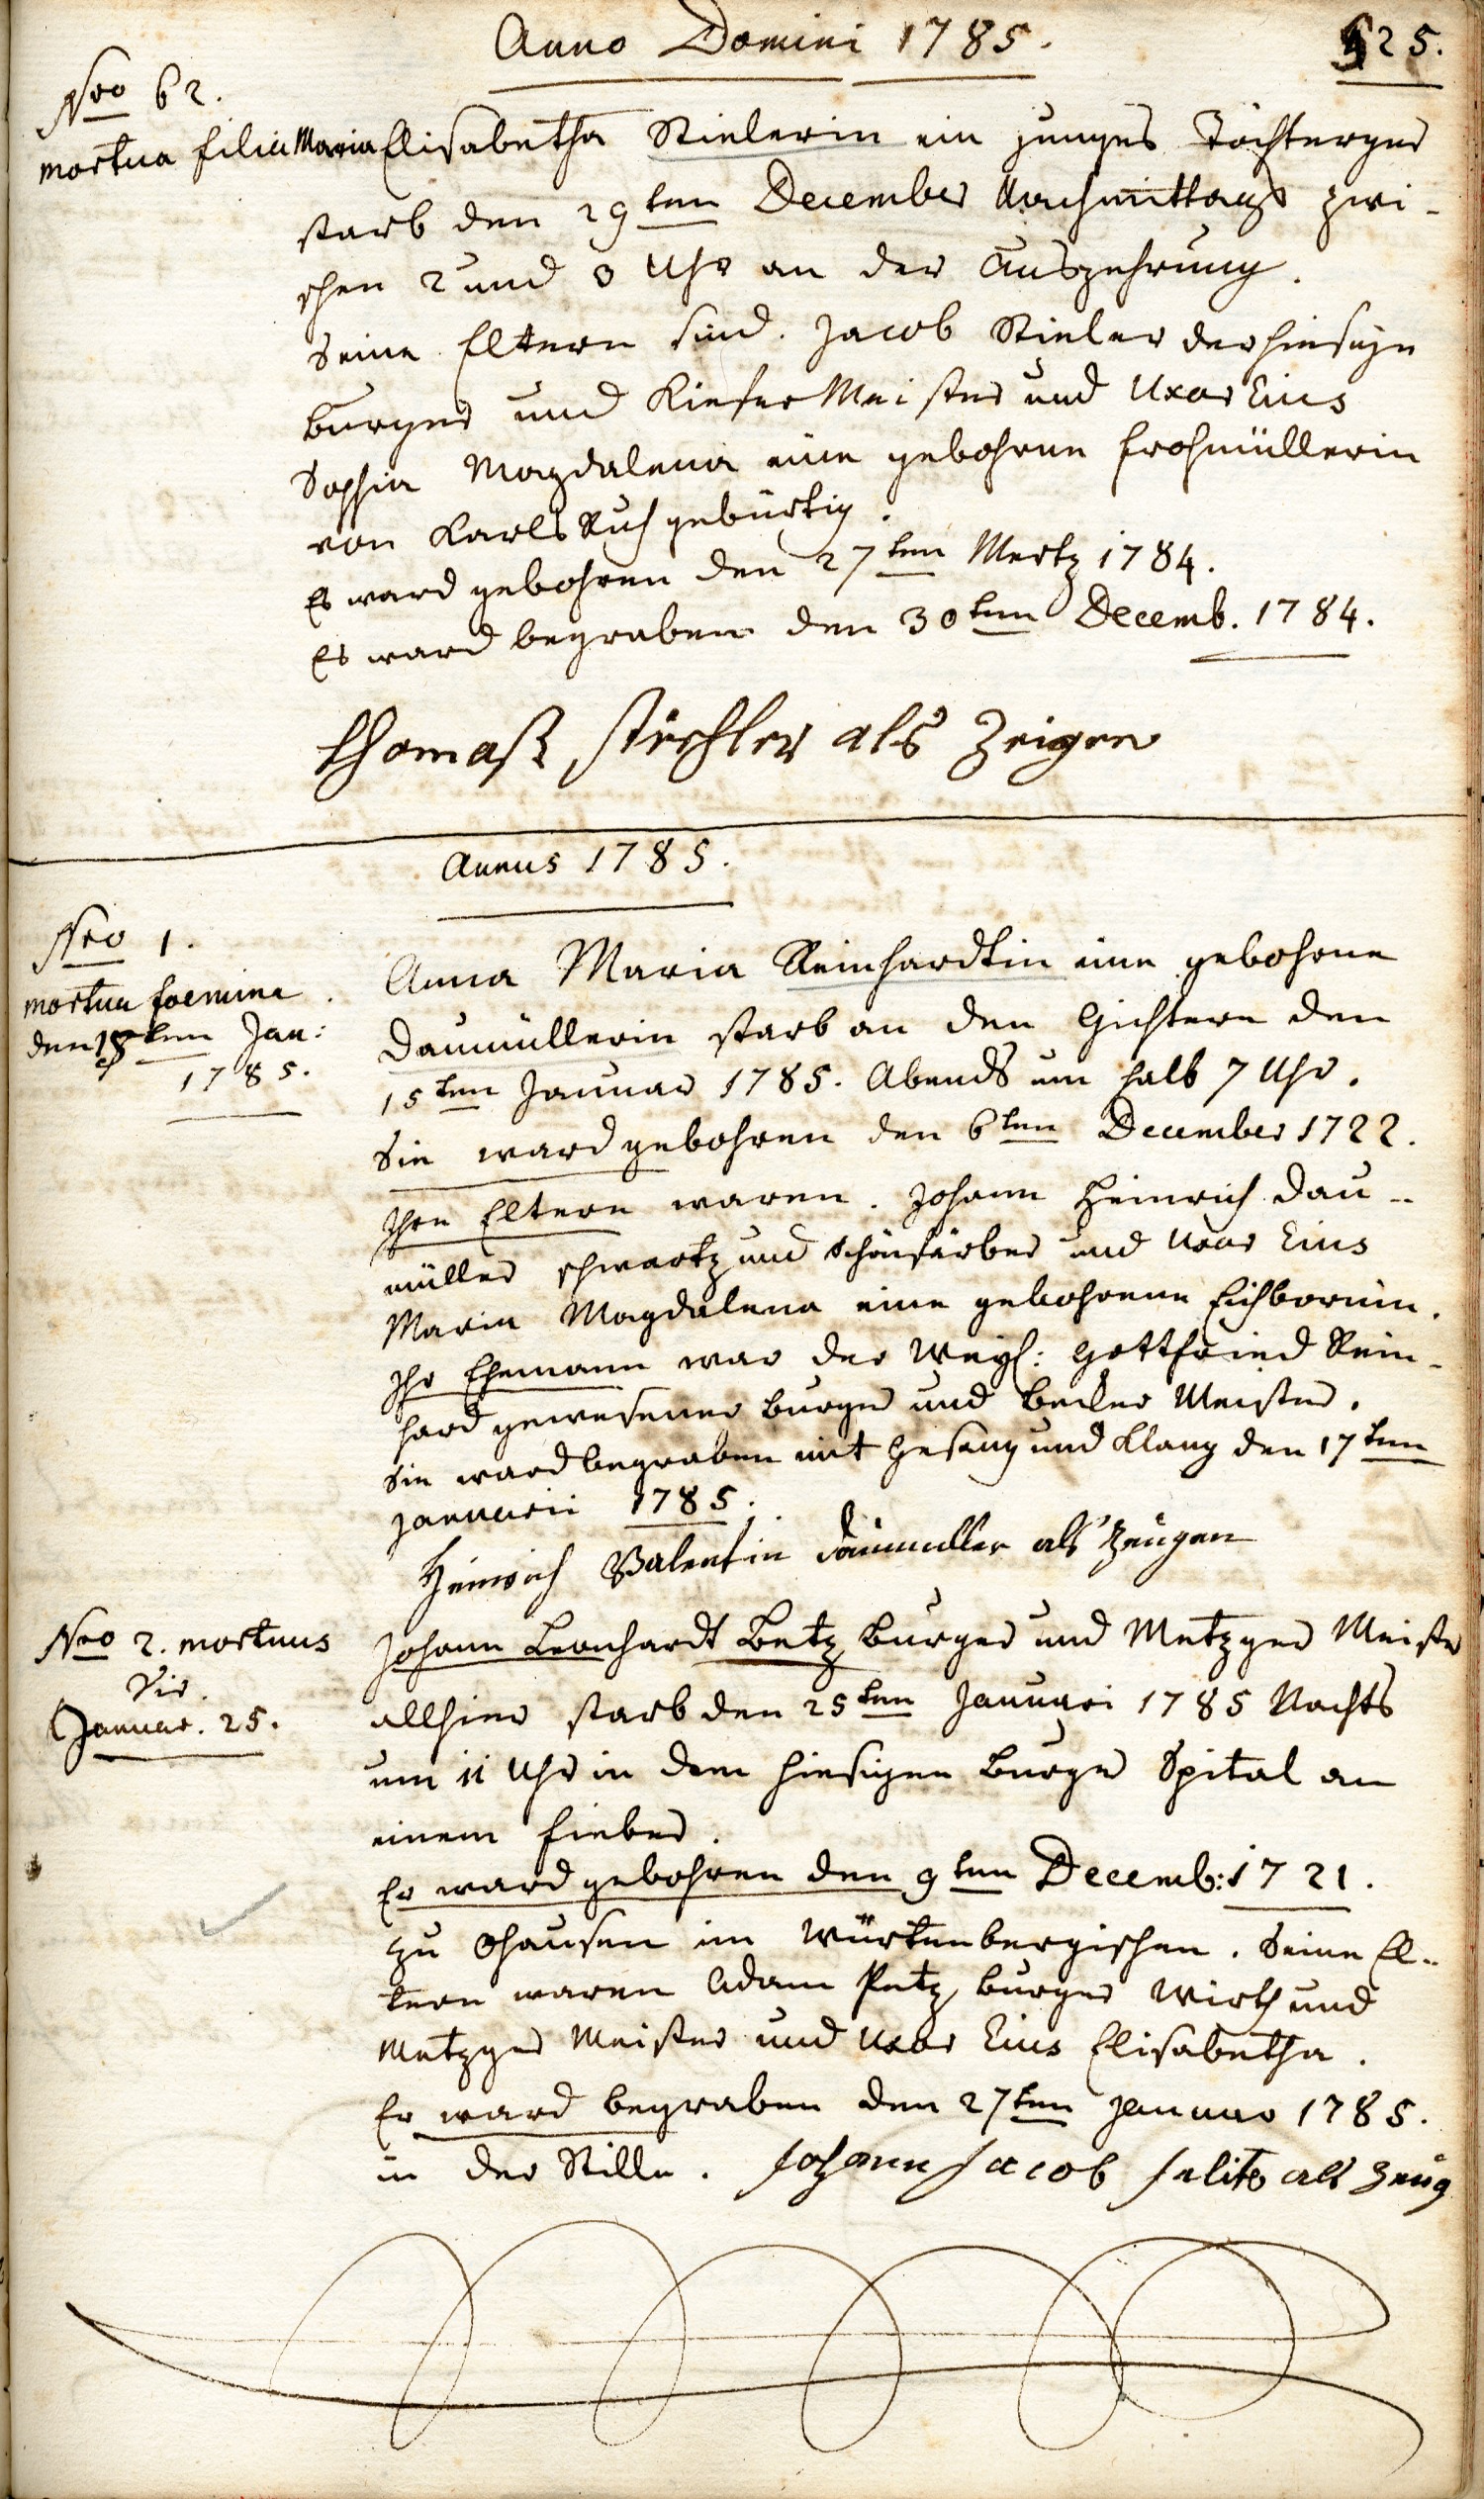 Anno Domini 1785.
525.
Nro 62.
mortua filia
Maria Elisabetha Stielerin ein junges Töchterger
starb den 29ten December Nachmittags zwi-
schen 2 und 3 Uhr an der Auszehrung.
Seine Eltern sind. Jacob Stieler der hiesige
Burger und Kiefer Meister und Uxor Eius
Sophia Magdalena eine gebohrne Frohmüllerin
von Karls Ruh gebürtig.
Es ward gebohren den 27ten Mertz 1784.
Es ward begraben den 30ten Decemb. 1784.
Thomaß als Zeigen
Annus 1785.
Nro 1.
mortua foemina
den 15ten Jan:
1785.
Anna Maria Reinhardtin eine gebohrne
Daumüllerin starb an den Gichtern den
15ten Januar 1785. Abends um halb 7 Uhr.
Sie ward gebohren den 6ten December 1722.
Ihre Eltern waren. Johann Heinrich Dau-
müller schwartz und Schönfärber und Uxor Eius
Maria Magdalena eine gebohrene Eichbornin.
Ihr Ehemann war der Weyl: Gottfried Rein-
hard gewesener Burger und Becker Meister.
Sie ward begraben mit Gesang und Klang den 17ten
Januarii 1785.
Heinrich Valentin Daumuller als Zeugen
Nro 2. mortuus
Vir.
Januar. 25.
Johann Leonhardt Betz Burger und Metzger Meister
allhier starb den 25ten Januari 1785 Nachts
um 11 Uhr in dem hiesigen Burger Spital an
einem Fieber.
Er ward gebohren den 9ten Decemb: 1721.
zu Ohausen im Würtenbergischen. Seine El-
tern waren Adam Petz Burger Wirth und
Metzger Meister und Uxor Eius Elisabetha.
Er ward begraben den 27ten Januar 1785.
in der Stille. Johann Jacob als Zeug